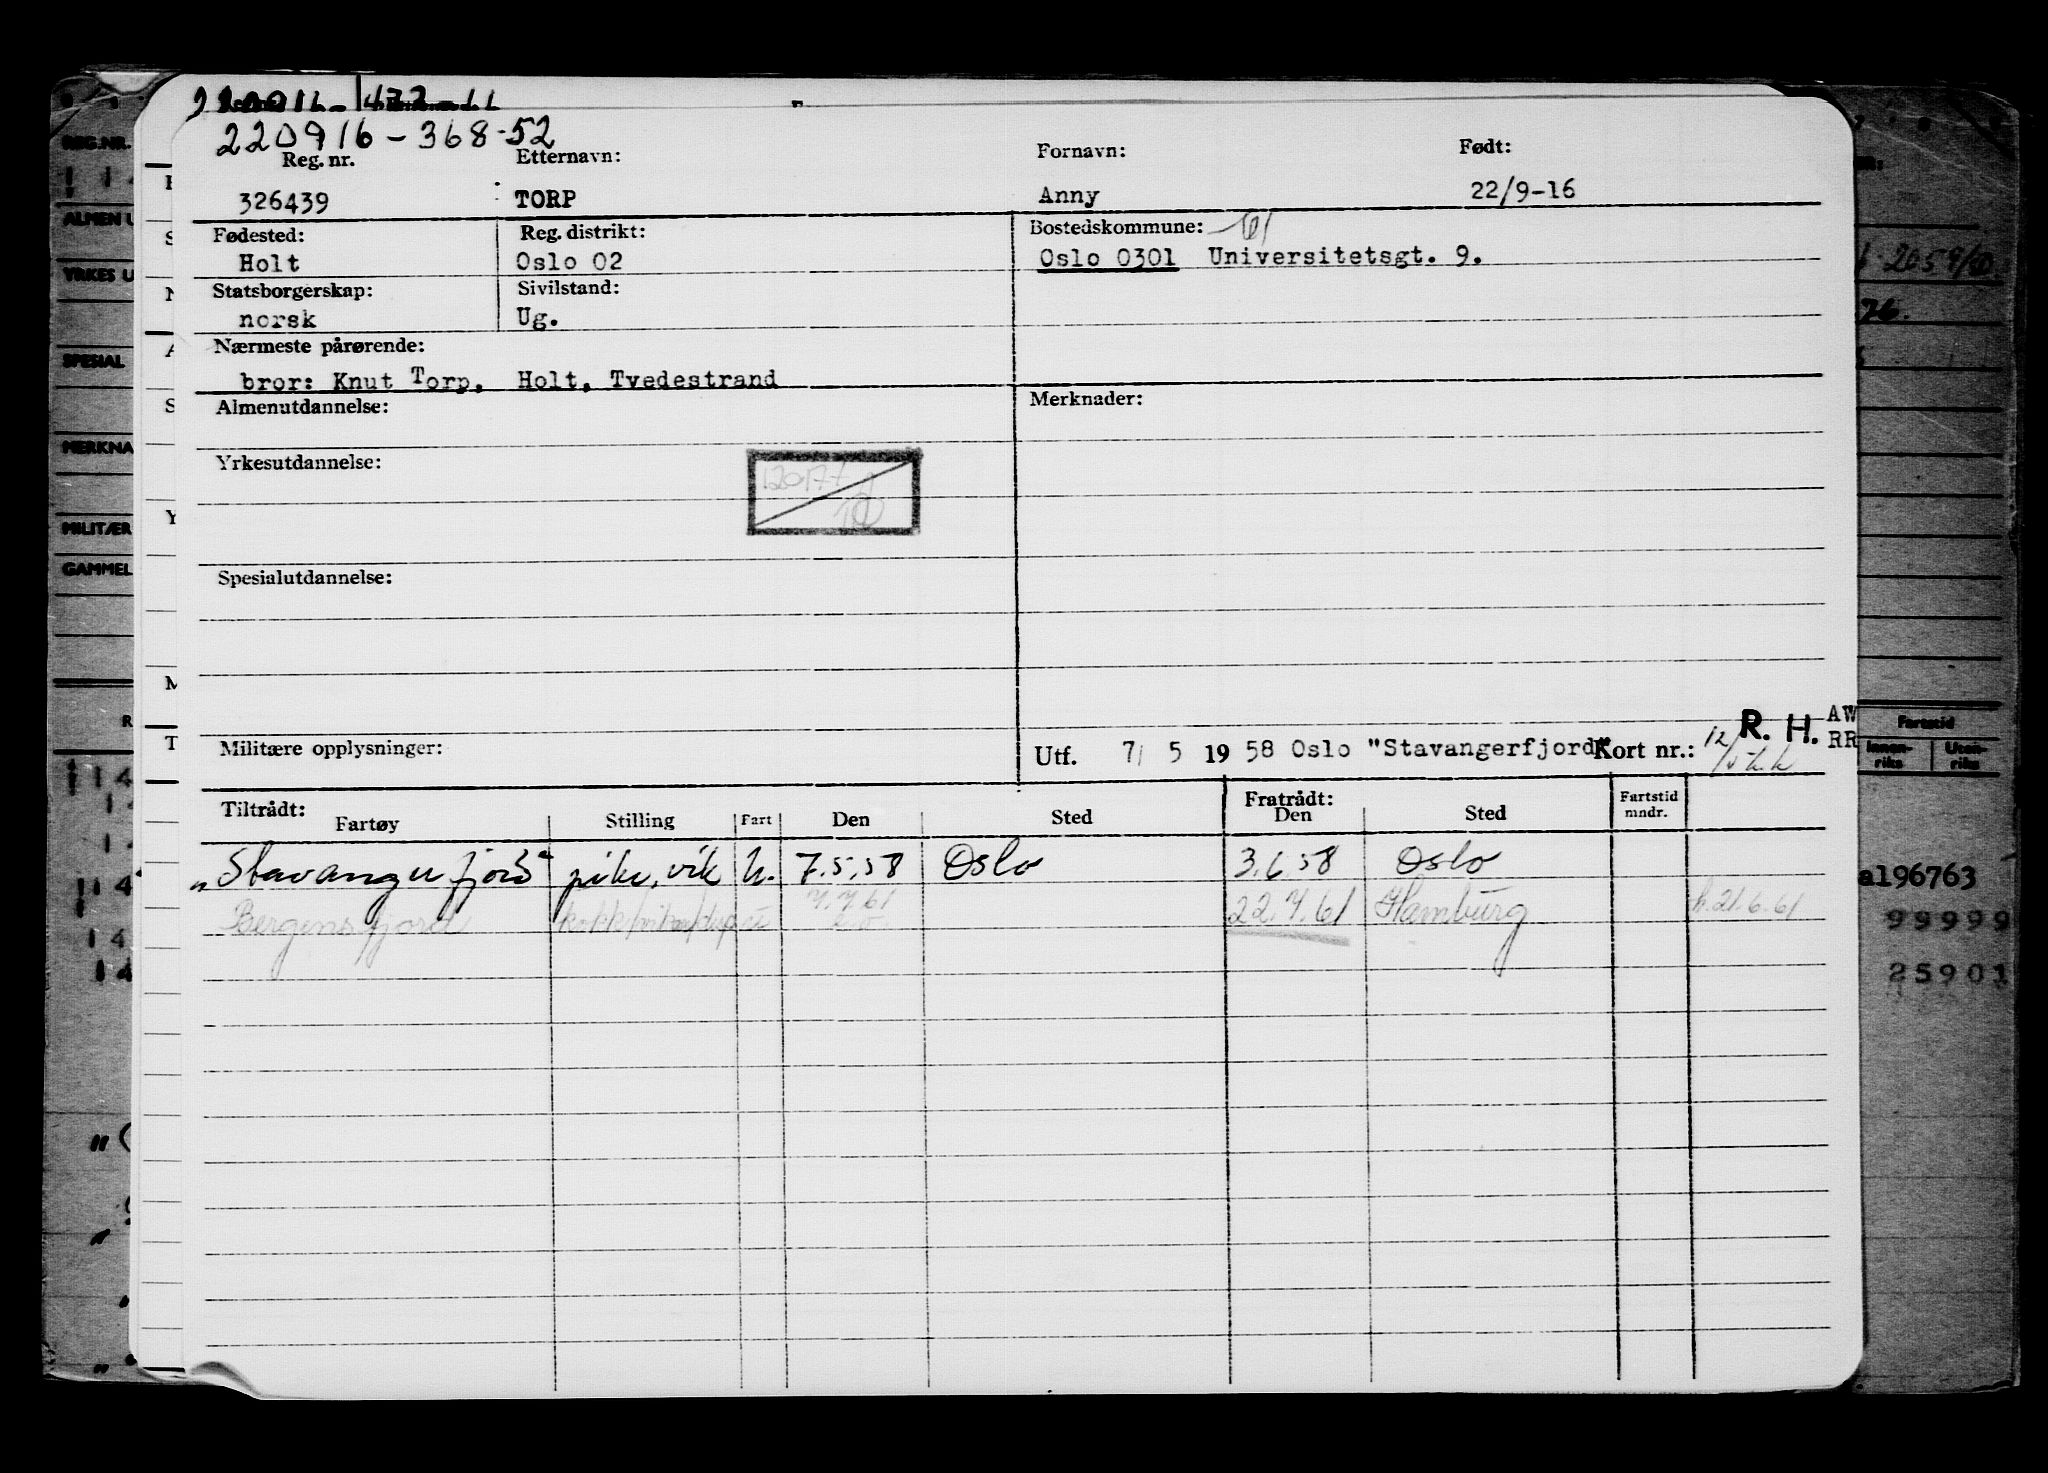 220916-368-52
Reg. nr. Etternavn: Fornavn: Født:
326439 TORP Anny 22/9-16
Fødested: Reg. distrikt: Bostedskommune:
Holt Oslo 02 Oslo 0301 Universitetsgt. 9.
Statsborgerskap: Sivilstand:
norsk Ug.
Nærmeste pårørende:
bror: Knut Torp, Holt, Tvedestrand
Almenutdannelse: Merknader:
Yrkesutdannelse:
Spesialutdannelse:
R. H.
Militære opplysninger: Utf. 7/ 5 19 58 Oslo "Stavangerfjord" Kort nr.:
Tiltrådt: Fratrådt: Fartstid
Fartøy Stilling Fart Den Sted Den Sted mndr.
"Stavangerfjord" pike, vik U. 7.5.58 Oslo 3.6.58 Oslo
Bergensfjord 22.7.61 Hamburg 21.6.61
REG.NR.
ALMEN U
YRKES U
SPESIAL
MERKNA
MILITÆR
GAMMEL
AW
RR
Fartstid
Innen-riks Uten-riks
a196763
99999
25901